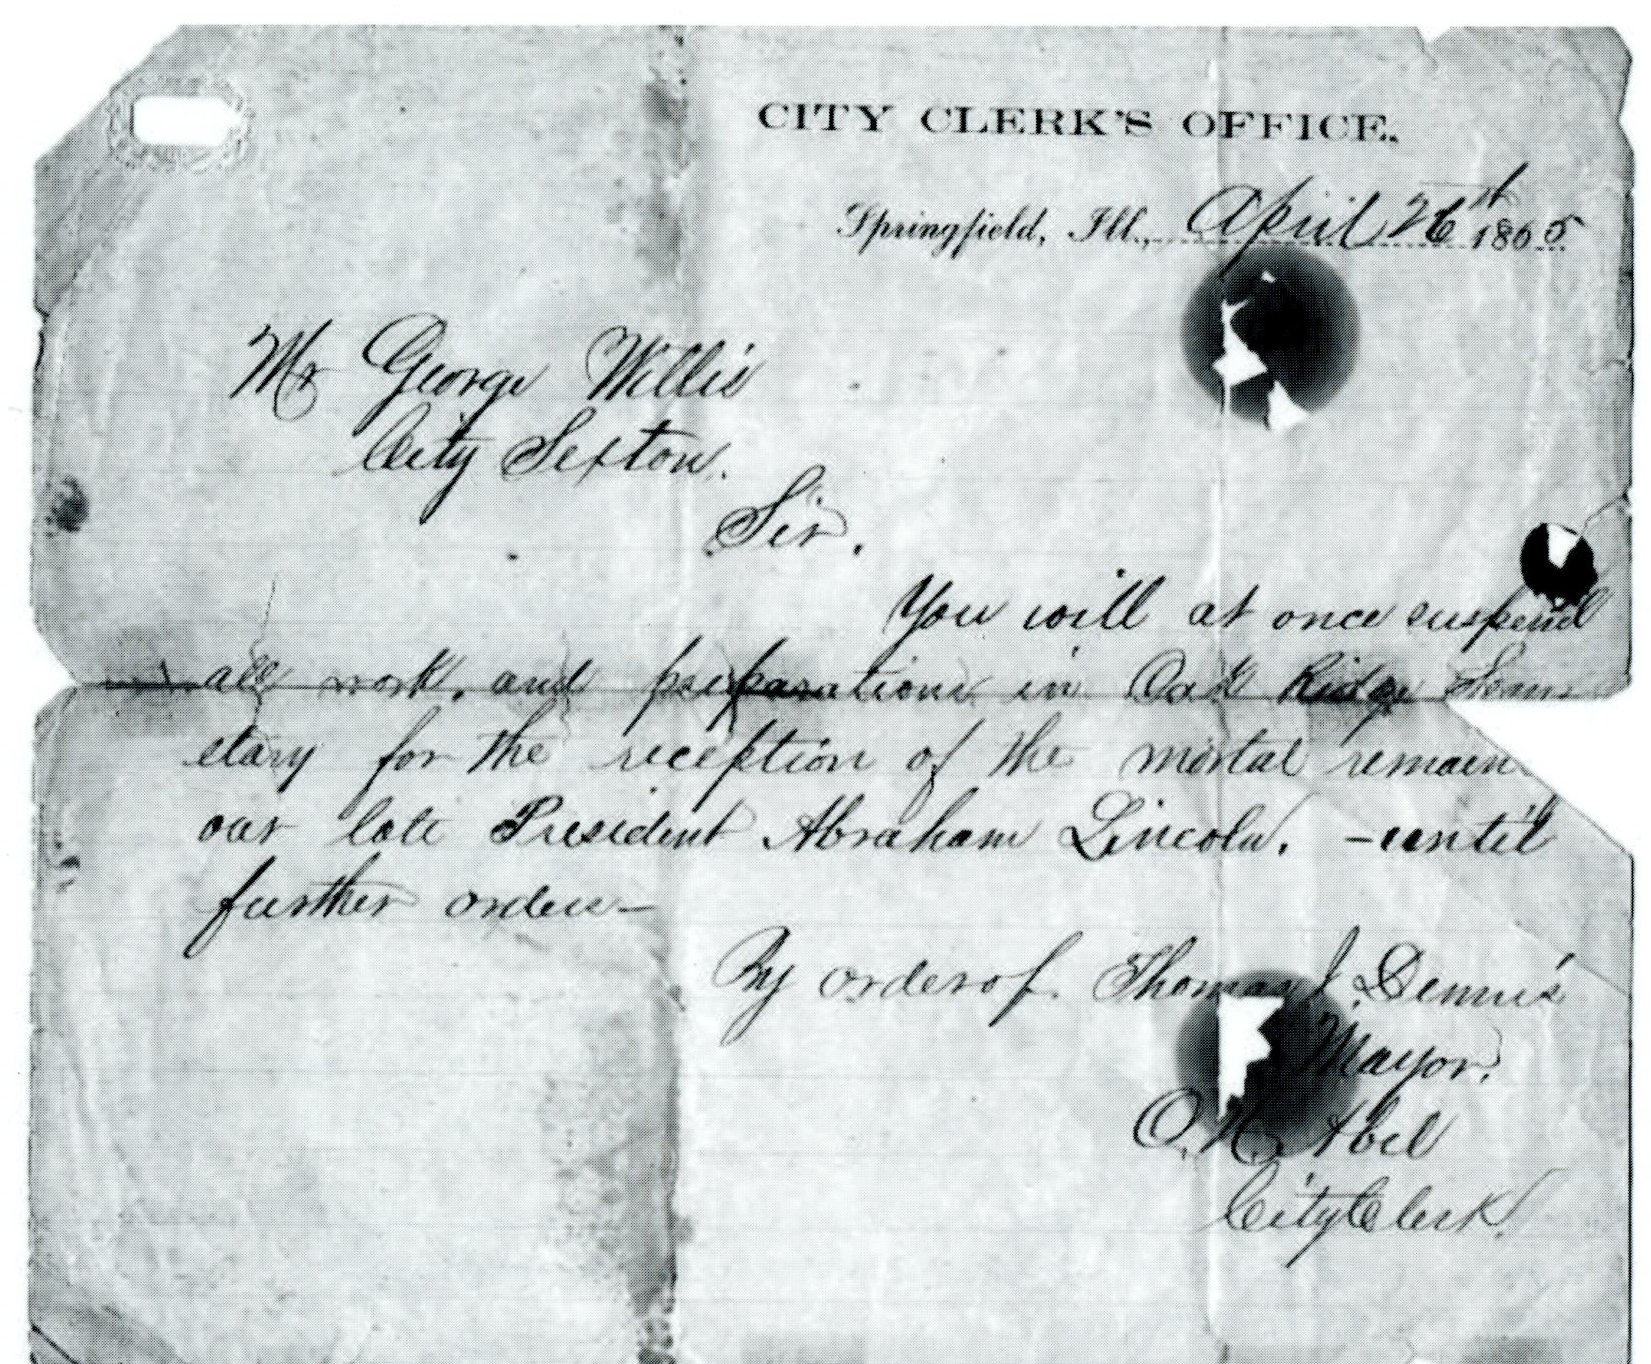 CITY CLERK'S OFFICE.
Springfield, Ill., April 26th 1865
Mr George Willis
City Sexton.
Sir.
You will at once suspend
all work, and preparations in Oak Ridge
etary for the reception of the mortal remains
our late President Abraham Lincoln. - until
further orders -
By order of Thomas J. Dennis
Mayor.
O. H. Abel
City Clerk.